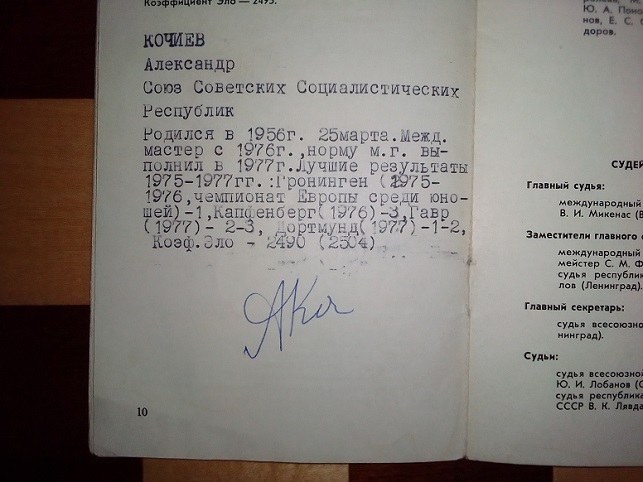 Коэффициент Эло — 2495.
КОЧИЕВ
Александр
Союз Советских Социалистических
Республик
Родился в 1956г. 25марта.Межд.
мастер с 1976г.,норму м.г. вы-
полнил в 1977г.Лучшие результаты
1975-1977гг.:Гронинген (1975-
1976,чемпионат Европы среди юно-
шей)-1,Капфенберг(1976)-3,Гавр
(1977)- 2-3, Дортмунд(1977)-1-2,
Коэф.Эло - 2490 (2504)
10
Ю. А. Поно
нов, Е. С.
доров.
СУДЕЙ
Главный судья:
международный
В. И. Микенас (В
Заместители главного с
международный
мейстер С. М. Ф
судья республик
лов (Ленинград).
Главный секретарь:
судья всесоюзно
нинград).
Судьи:
судья всесоюзной
Ю. И. Лобанов (С
судья республика
СССР В. К. Лявда